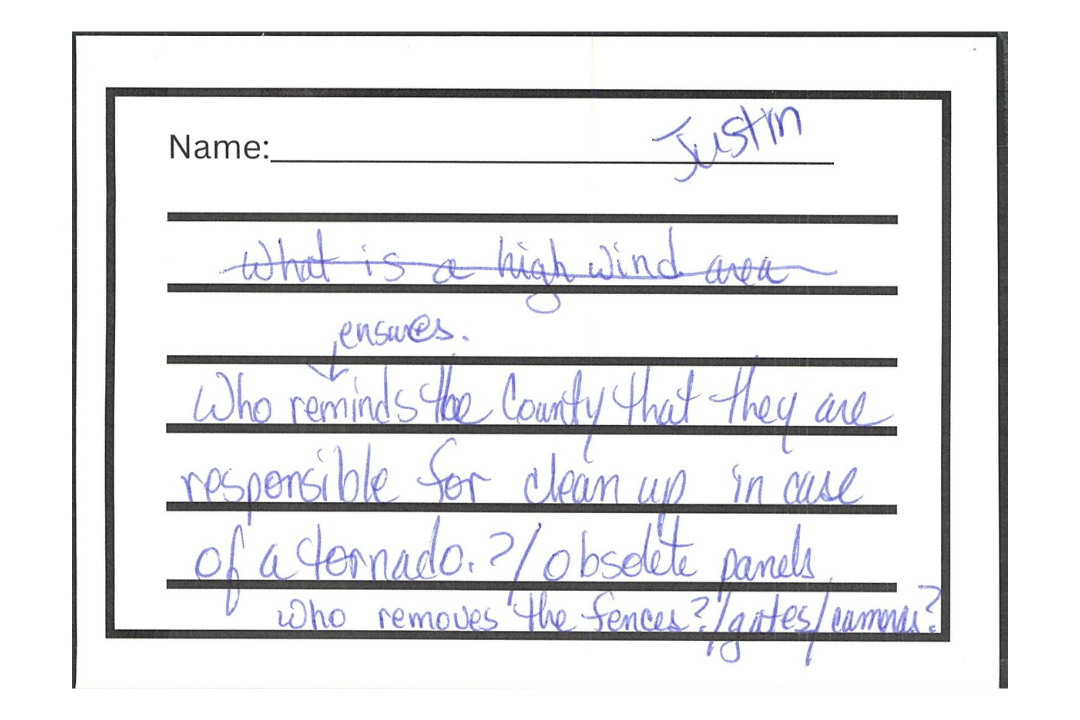 Name: Justin
What is a high wind area
ensures.
Who reminds the County that they are
responsible for clean up in case
of a tornado.?/obsolete panels
who removes the fences?/gates/cameras?